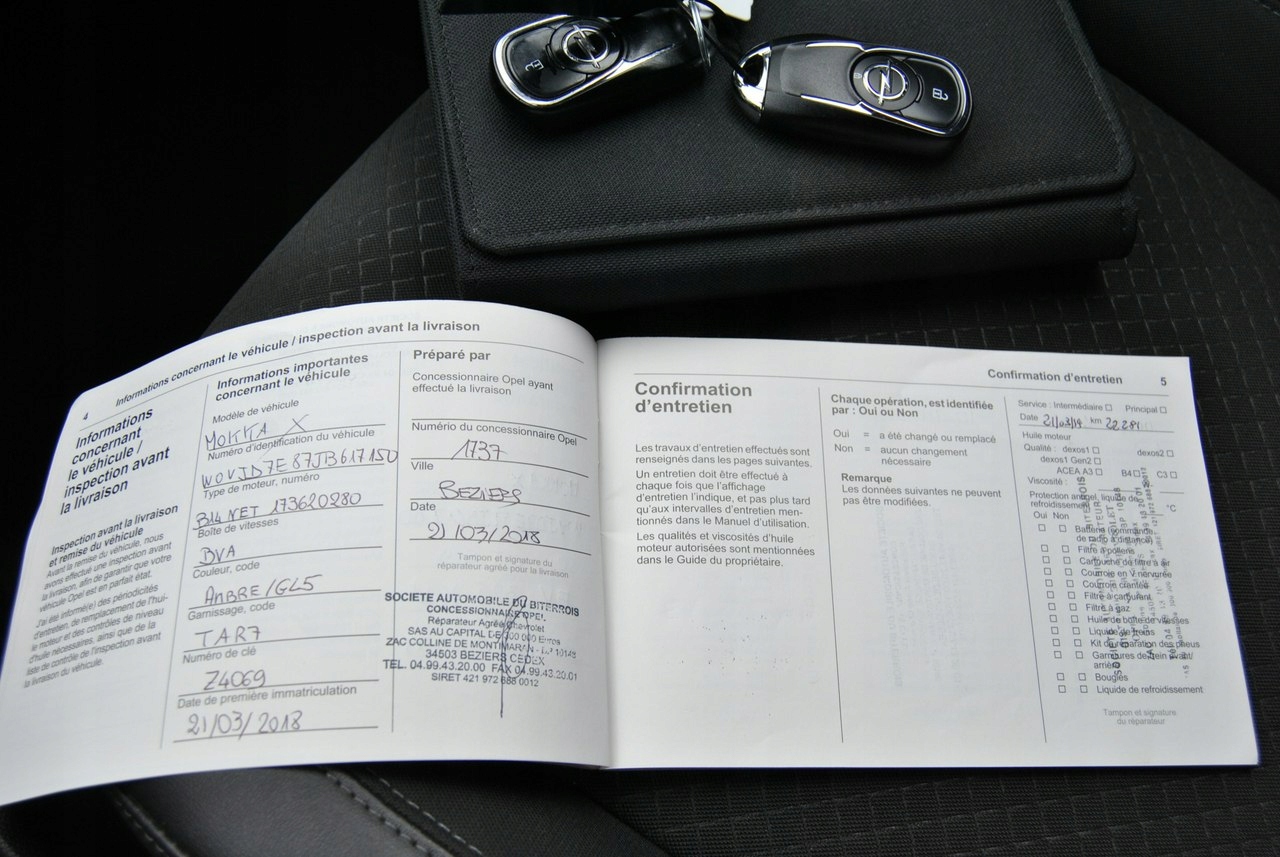 4 Informations concernant le véhicule / inspection avant la livraison
Informations
concernant
le véhicule /
inspection avant
la livraison
Inspection avant la livraison
et remise du véhicule
Avant la remise du véhicule, nous
avons effectué une inspection avant
la livraison, afin de garantir que votre
véhicule Opel est en parfait état.
J'ai été informé(e) des périodicités
d'entretien, de remplacement de l'hui-
le moteur et des contrôles de niveau
d'huile nécessaires, ainsi que de la
liste de contrôle de l'inspection avant
la livraison du véhicule.
Informations importantes
concernant le véhicule
Modèle de véhicule
MOKKA X
Numéro d'identification du véhicule
W0VJD7E87JB617150
Type de moteur, numéro
B14 NET 173620280
Boîte de vitesses
BVA
Couleur, code
AMBRE/GL5
Garnissage, code
TAR7
Numéro de clé
Z4069
Date de première immatriculation
21/03/2018
Préparé par
Concessionnaire Opel ayant
effectué la livraison
Numério du concessionnaire Opel
1737
Ville
BEZIERS
Date
21/03/2018
Tampon et signature du
réparateur agréé pour la livraison
SOCIETE AUTOMOBILE DU BITERROIS
CONCESSIONNAIRE OPEL
Réparateur Agréé Chevrolet
SAS AU CAPITAL DE 300 000 Euros
ZAC COLLINE DE MONTIMARAN - 10148
34503 BEZIERS CEDEX
TEL. 04.99.43.20.00 FAX 04.99.43.20.01
SIRET 421 972 688 0012
Confirmation d'entretien 5
Confirmation
d'entretien
Les travaux d'entretien effectués sont
renseignés dans les pages suivantes.
Un entretien doit être effectué à
chaque fois que l'affichage
d'entretien l'indique, et pas plus tard
qu'aux intervalles d'entretien men-
tionnés dans le Manuel d'utilisation.
Les qualités et viscosités d'huile
moteur autorisées sont mentionnées
dans le Guide du propriétaire.
Chaque opération, est identifiée
par : Oui ou Non
Oui = a été changé ou remplacé
Non = aucun changement
nécessaire
Remarque
Les données suivantes ne peuvent
pas être modifiées.
Service : Intermédiaire Principal
Date 21/03/19 km 22 281
Huile moteur
Qualité : dexos1 dexos2
dexos1 Gen2
ACEA A3 B4 C3
Viscosité :
Protection antigel, liquide de
refroidissement °C
Oui Non
Batterie commande
de radio à distance
Filtre à pollens
Cartouche de filtre à air
Courroie en V nervurée
Courroie crantée
Filtre à carburant
Filtre à gaz
Huile de boîte de vitesses
Liquide de freins
Kit de réparation des pneus
Garnitures de frein avant/
arrière
Bougies
Liquide de refroidissement
Tampon et signature
du réparateur